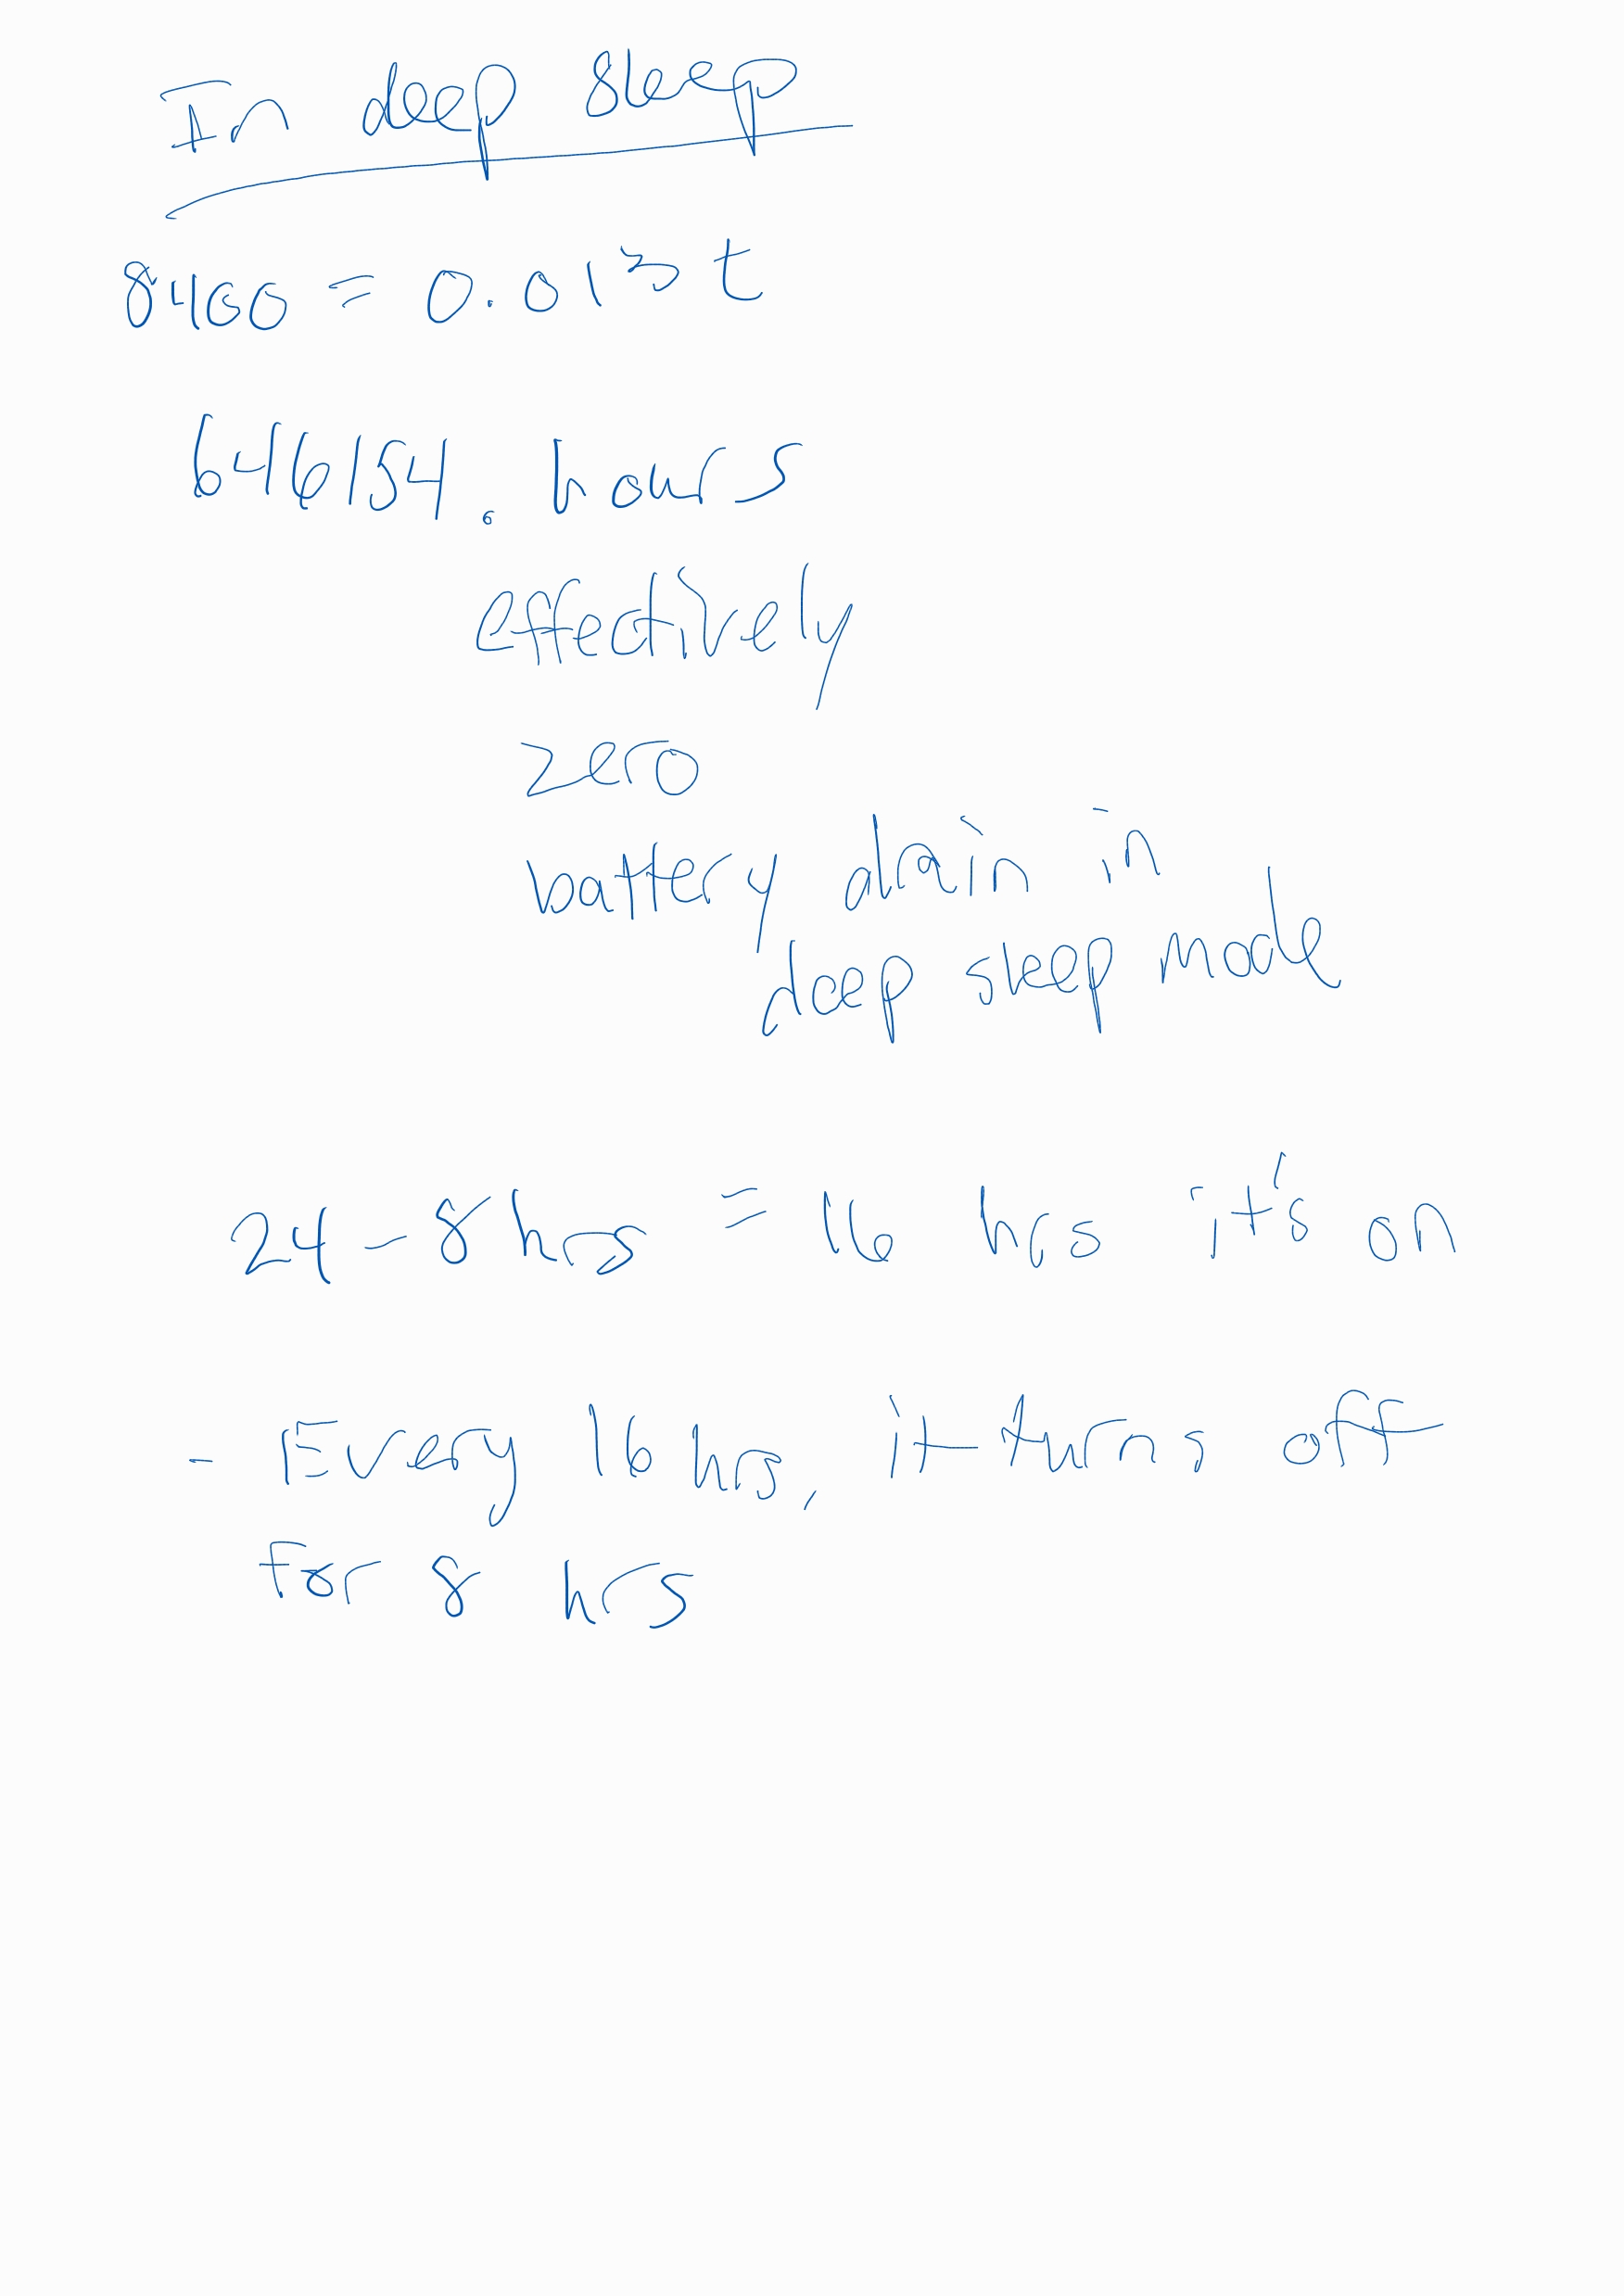 In deep sleep
8400 = 0.013 t
646154. hours
effectively
zero
battery drain in
deep sleep mode
24 - 8 hrs = 16 hrs it's on
- Every 16 hrs, it turns off
for 8 hrs